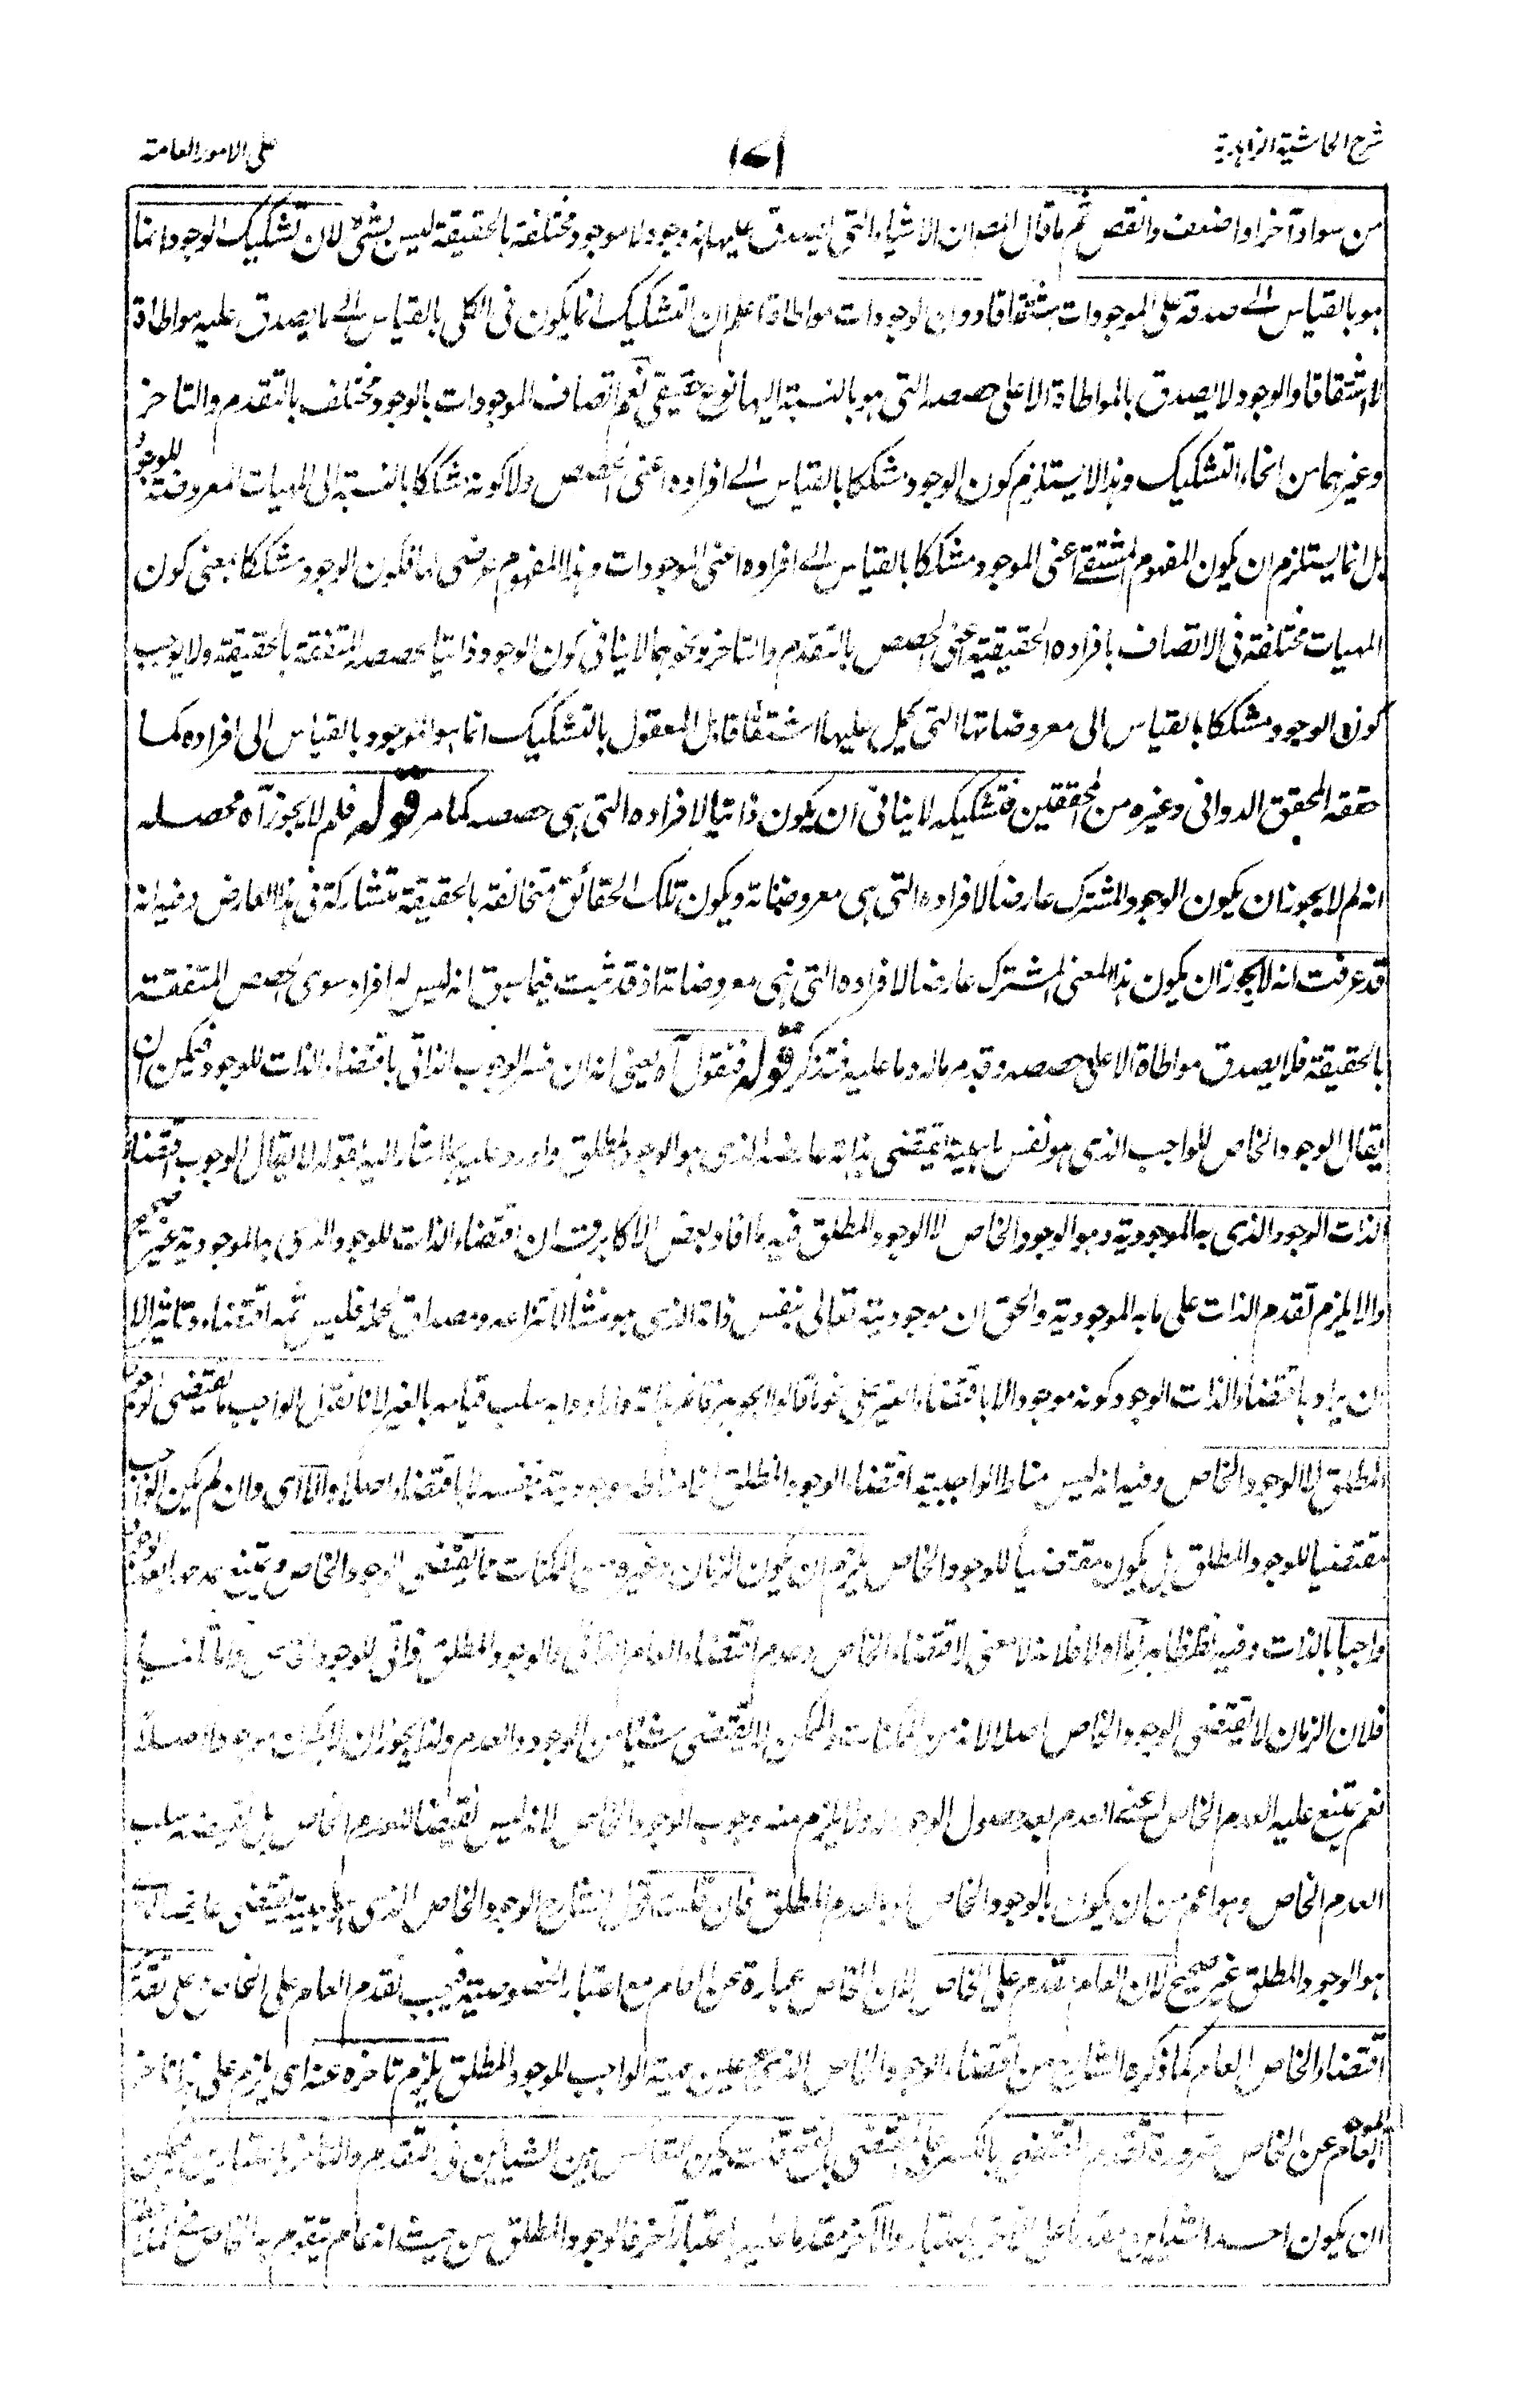 شرح الحاشية الزاهدية
١٧١
على الامور العامة
من سواد آخر او اضعف وانقص ثم ما قال المص ان الاشياء التى يصدق عليها انه وجود او موجود مختلفة بالحقيقة ليس بشئ لان تشكيك الوجود انما
هو بالقياس الى صدقه على الموجودات اشتقاقا دون الوجودات مواطاة اعلم ان التشكيك انما يكون فى الكلى بالقياس الى ما يصدق عليه مواطاة
لا اشتقاقا والوجود لا يصدق بالمواطاة الا على حصصه التى هو بالنسبة اليها نوع حقيقى نعم اتصاف الموجودات بالوجود مختلف بالتقدم والتاخر
وغيرهما من انحاء التشكيك وهذا لا يستلزم كون الوجود مشككا بالقياس الى افراده اعنى الحصص ولا كونه مشككا بالنسبة الى المهيات المعروضة للوجود
بل انما يستلزم ان يكون المفهوم المشتق اعنى الموجود مشككا بالقياس الى افراده اعنى الموجودات وهذا المفهوم عرضى لها فكون الوجود مشككا بمعنى كون
المهيات مختلفة فى الاتصاف بافراده الحقيقية اعنى الحصص بالتقدم والتاخر ونحوهما لا ينافى كون الوجود ذاتيا لحصصه المتفقة بالحقيقة ولا يوجب
كون الوجود مشككا بالقياس الى معروضاتها التى يحمل عليها اشتقاقا بل المعقول بالتشكيك انما هو الموجود بالقياس الى افراده كما
حققه المحقق الدوانى وغيره من المحققين فتشكيكه لا ينافى ان يكون ذاتيا لافراده التى هى حصصه كما مر قوله فلم لا يجوز آه محصله
انه لم لا يجوز ان يكون الوجود المشترك عارضا لافراده التى هى معروضاته ويكون تلك الحقائق متخالفة بالحقيقة متشاركة فى هذا العارض وفيه انه
قد عرفت انه لا يجوز ان يكون هذا المعنى المشترك عارضا لافراده التى هى معروضاته اذ قد ثبت فيما سبق انه ليس له افراد سوى الحصص المتفقة
بالحقيقة فلا يصدق مواطاة الا على حصصه وقد مر ماله وما عليه فتذكر قوله فنقول آه يعنى انه ان فسر الوجوب الذاتى باقتضاء الذات للوجود فيمكن ان
يقال الوجود الخاص للواجب الذى هو نفس ماهيته يقتضى بذاته عارضه الذى هو الوجود المطلق واورد عليه ما اشار اليه بقوله لا يقال الوجوب اقتضاء
الذات الوجود الذى به الموجودية وهو الوجود الخاص لا الوجود المطلق فيه ما افاد بعض الاكابر قده ان اقتضاء الذات للوجود الذى به الموجودية غير صحيح
والا يلزم تقدم الذات على ما به الموجودية والحق ان موجوديته تعالى بنفس ذاته الذى هو منشأ لانتزاعه ومصداق لحمله فليس ثمه اقتضاء وتاثير الا
ان يراد باقتضاء الذات الوجود كونه موجودا لا باقتضاء الغير على نحو ما قالوا الجوهر قائم بذاته وارادوا به سلب قيامه بالغير لانا نقول الواجب ما يقتضى الوجود
المطلق لا الوجود الخاص وفيه انه ليس مناط الواجبية اقتضاء الوجود المطلق انما مناطه موجودية بنفسه لا باقتضاء اصلا والا اى وان لم يكن الواجب
مقتضيا للوجود المطلق بل يكون مقتضيا للوجود الخاص يلزم ان يكون الزمان وغيره من الممكنات مما يقتضى الوجود الخاص ويمتنع عدمه بعد الوجود
واجبا بالذات وفيه نظر ظاهر اما اولا فلانه لا معنى لاقتضاء الخاص وعدم اقتضاء العام اذ الوجود المطلق ذاتى للوجود الخاص واما ثانيا
فلان الزمان لا يقتضى الوجود الخاص اصلا لانه من الممكنات والممكن لا يقتضى شيئا من الوجود والعدم ولذا يجوز ان لا يكون موجودا اصلا
نعم يمتنع عليه العدم الخاص اعنى العدم بعد حصول الوجود ولا يلزم منه وجوب الوجود الخاص لانه ليس نقيضا للعدم الخاص بل نقيضه سلب
العدم الخاص وهو اعم من ان يكون بالوجود الخاص او بالعدم المطلق فان قلت قول الشارح الوجود الخاص الذى هو ماهيته يقتضى عارضه الذى
هو الوجود المطلق غير صحيح لان العام مقدم على الخاص لان الخاص عبارة عن العام مع اعتبار الخصوصية فيجب تقدم العام على الخاص وعلى تقدير
اقتضاء الخاص العام كما ذكره الشارح من اقتضاء الوجود الخاص الذى هو عين مهية الواجب للوجود المطلق يلزم تاخره عنه اى يلزم على هذا تاخر
العام عن الخاص ضرورة تقدم المقتضى بالكسر على المقتضى بالفتح قلت يمكن التعاكس بين الشيئين فى التقدم والتاخر باعتبارين فيمكن
ان يكون احد الشيئين مقدما على الآخر باعتبار والآخر مقدما عليه باعتبار آخر فالوجود المطلق من حيث انه عام يتقدم على الخاص